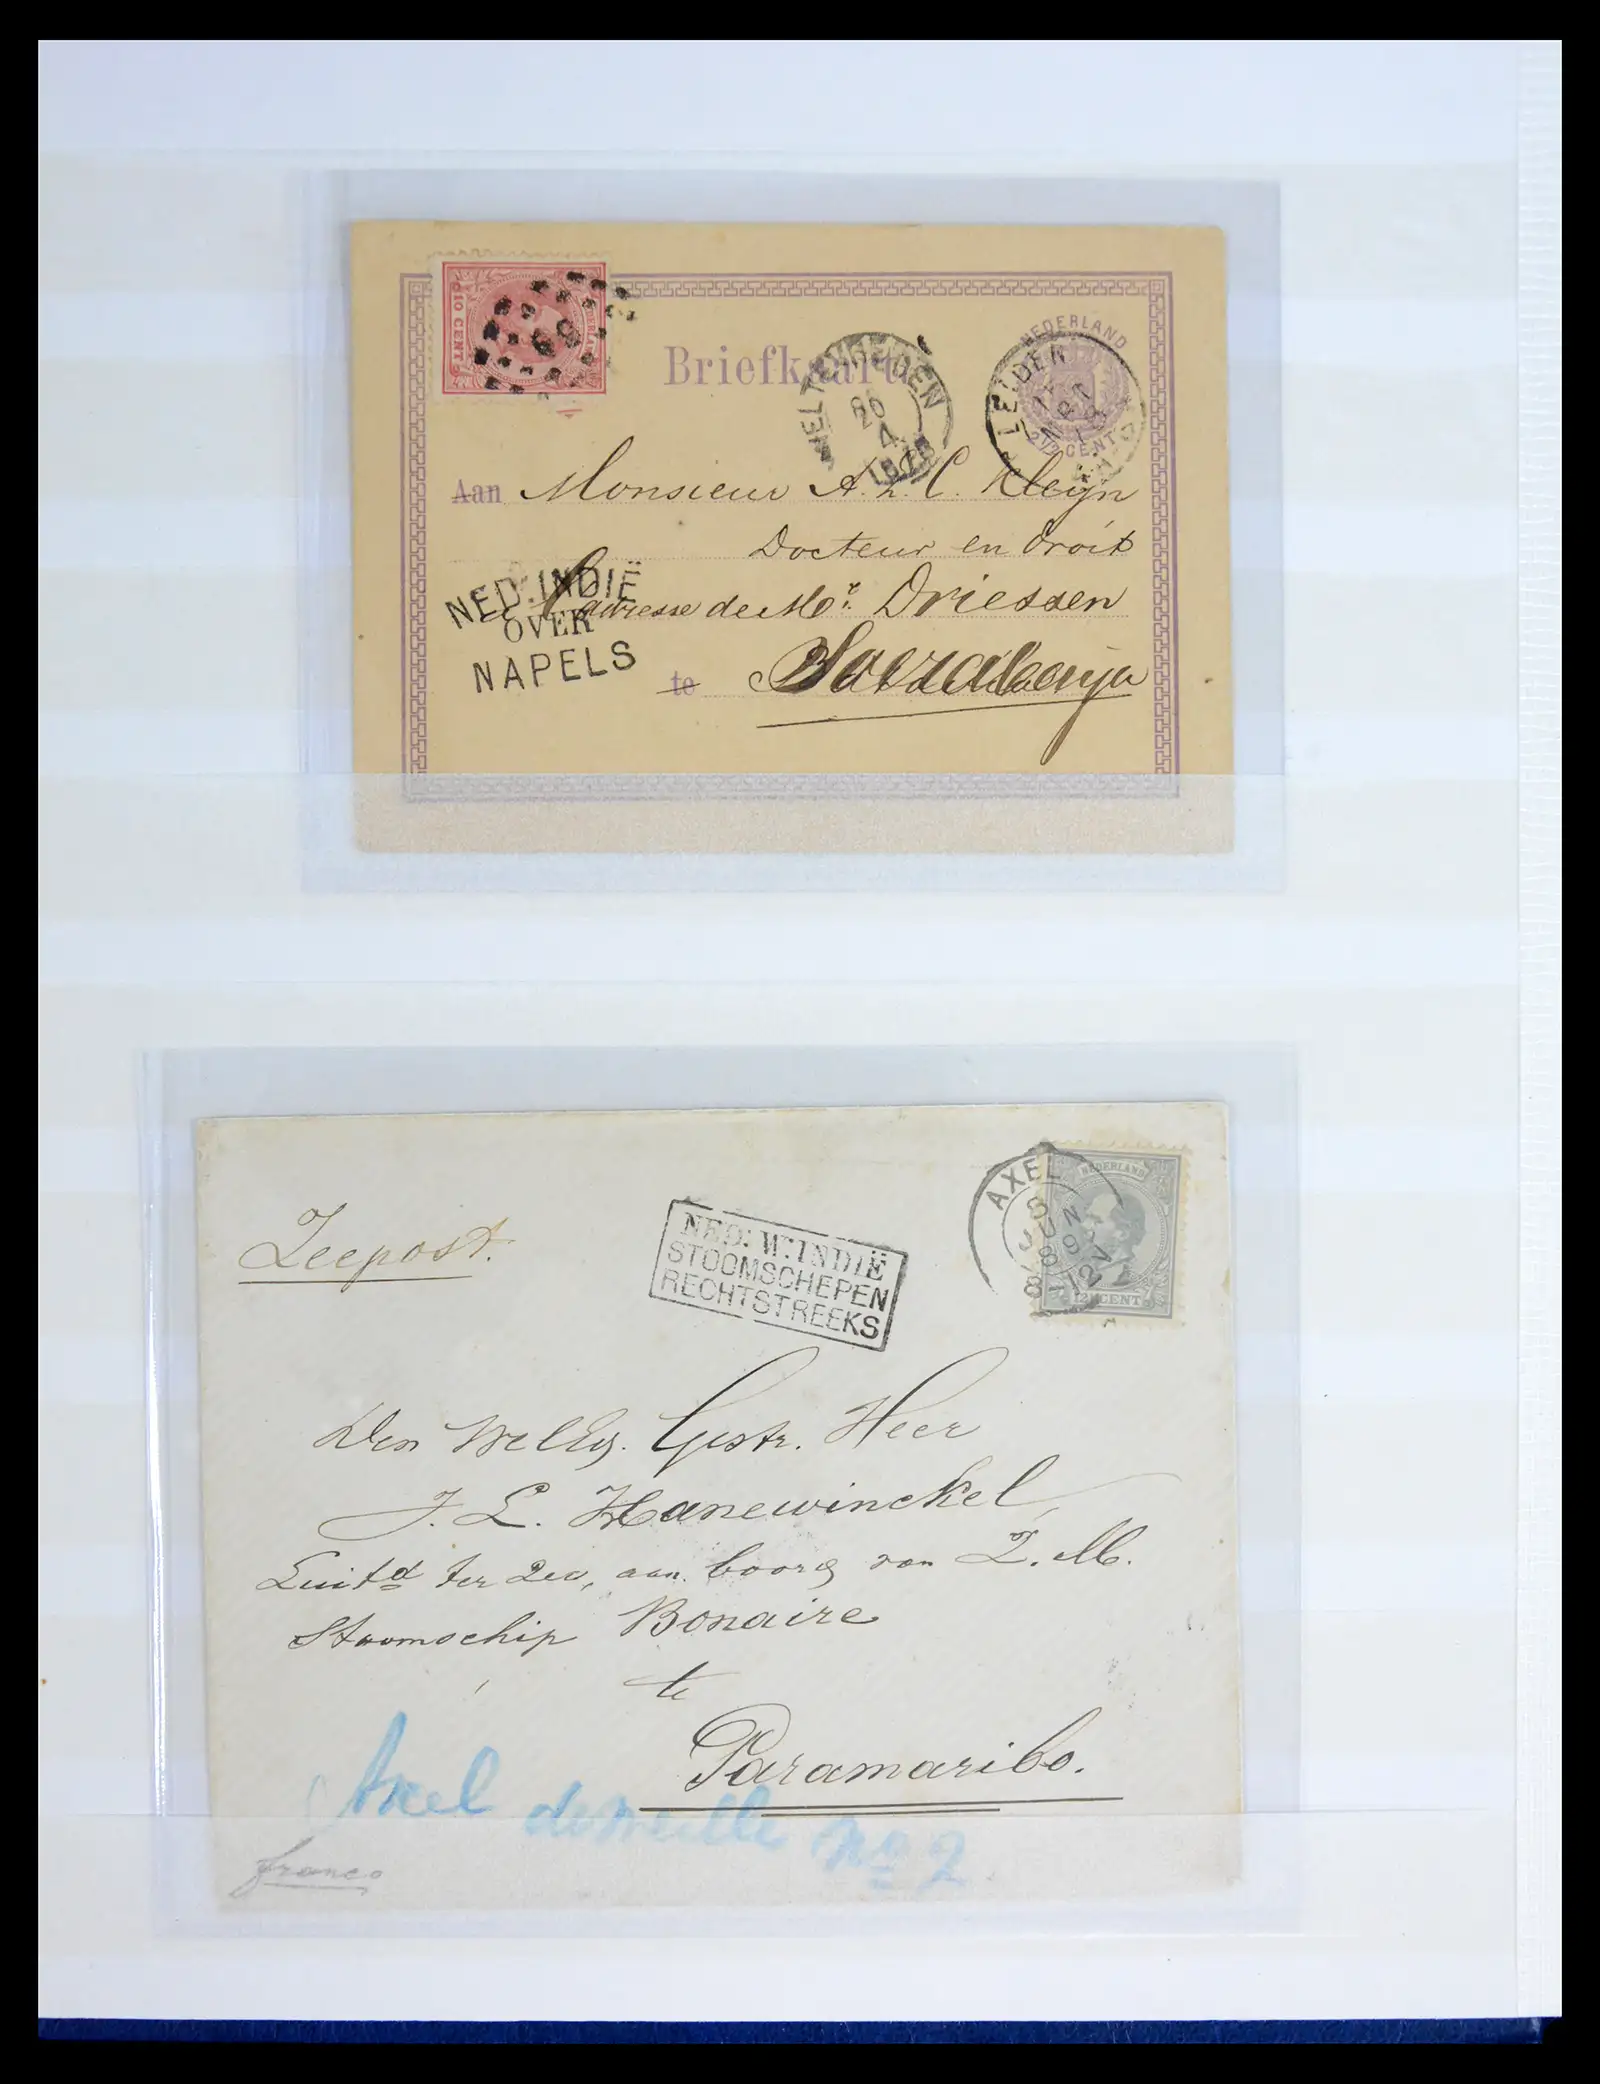 10 CENT
Briefkaart
NEDERLAND
2½ CENT
WELTEVREDEN
20
4
1878
LEIDEN
Aan Monsieur A. L. C. Kleyn
Docteur en droit
adresse de Mr. Driessen
te Soerabaya
NED. INDIË
OVER
NAPELS
NEDERLAND
12½ CENT
AXEL
8 JUN
88
Zeepost.
NED: W: INDIË
STOOMSCHEPEN
RECHTSTREEKS
Den WelEdG. Gestr. Heer
J. L. Hanewinckel,
Luitd ter Zee, aan boord van Z. M.
Stoomschip Bonaire
te
Paramaribo.
Axel No 2
franco